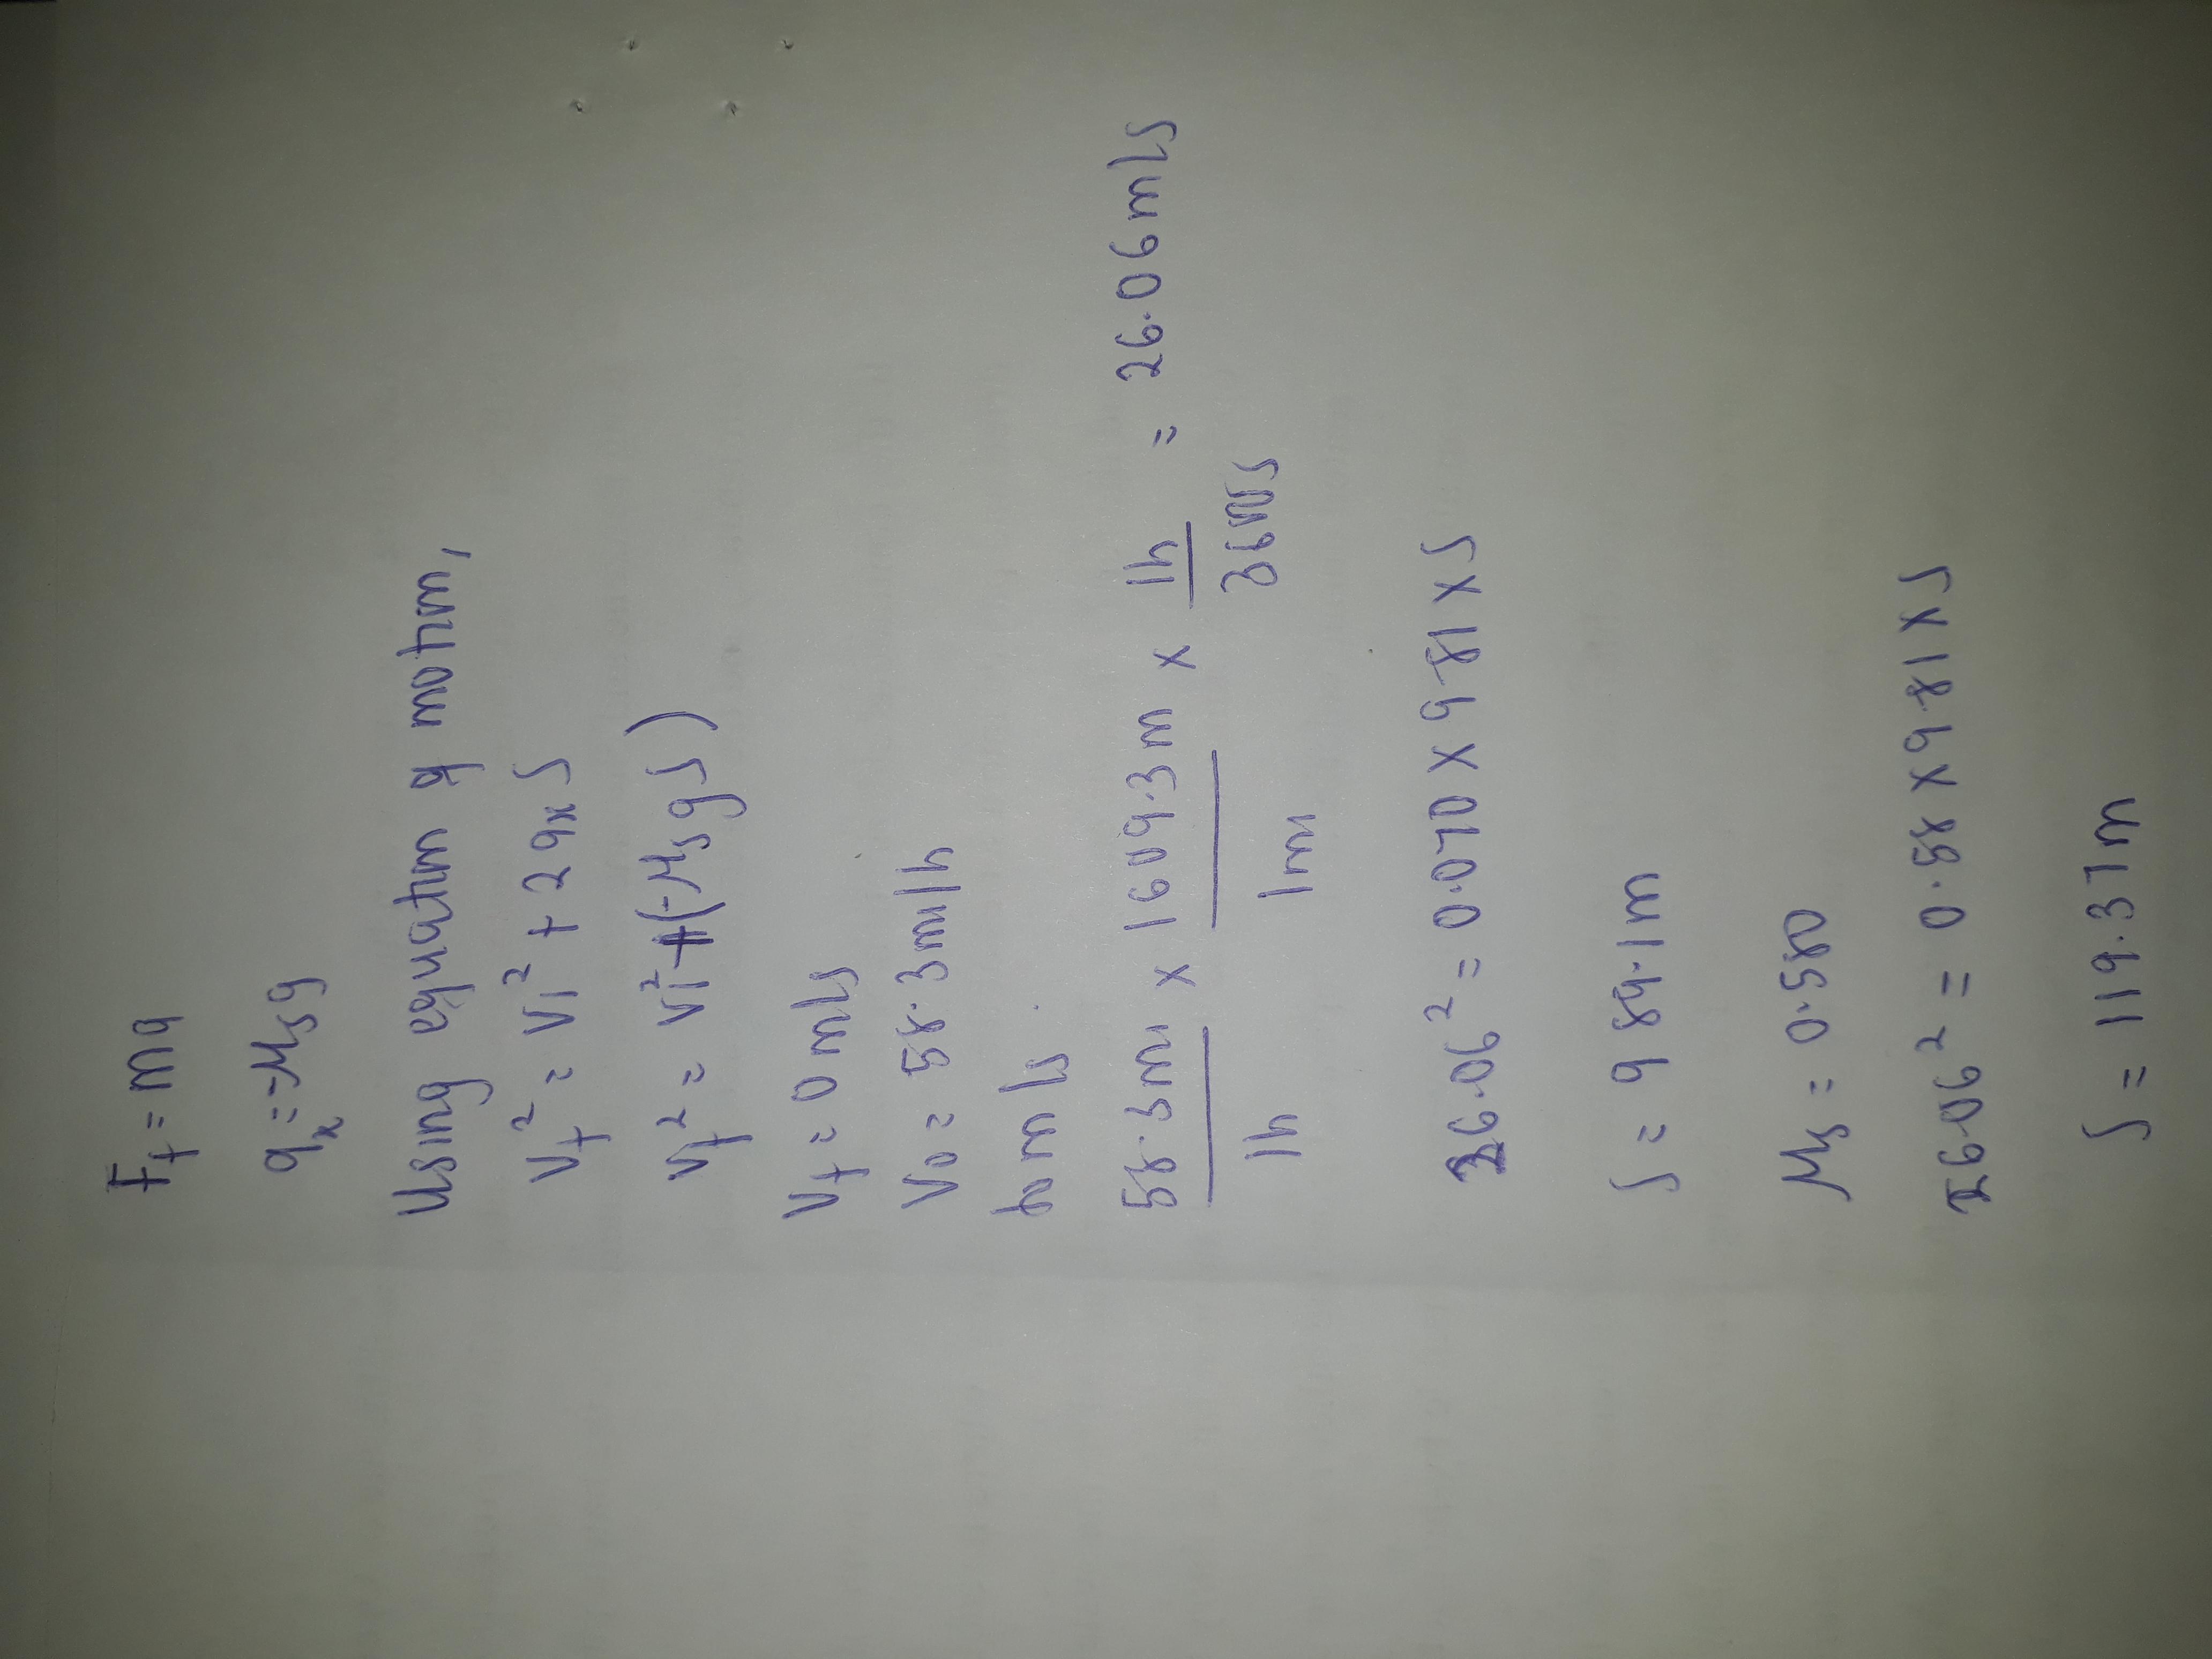 Ff = ma
ax = -μsg
Using equation of motion,
Vf² = Vi² + 2axS
Vf² = Vi² + (-μsgs)
Vf = 0 m/s
V0 = 58.3 mi/h
to m/s
58.3mi/1h × 1609.3m/1mi × 1h/3600s = 26.06 m/s
26.06² = 0.070 × 9.81 × S
S = 989.1m
μs = 0.580
26.06² = 0.58 × 9.81 × S
S = 119.37m